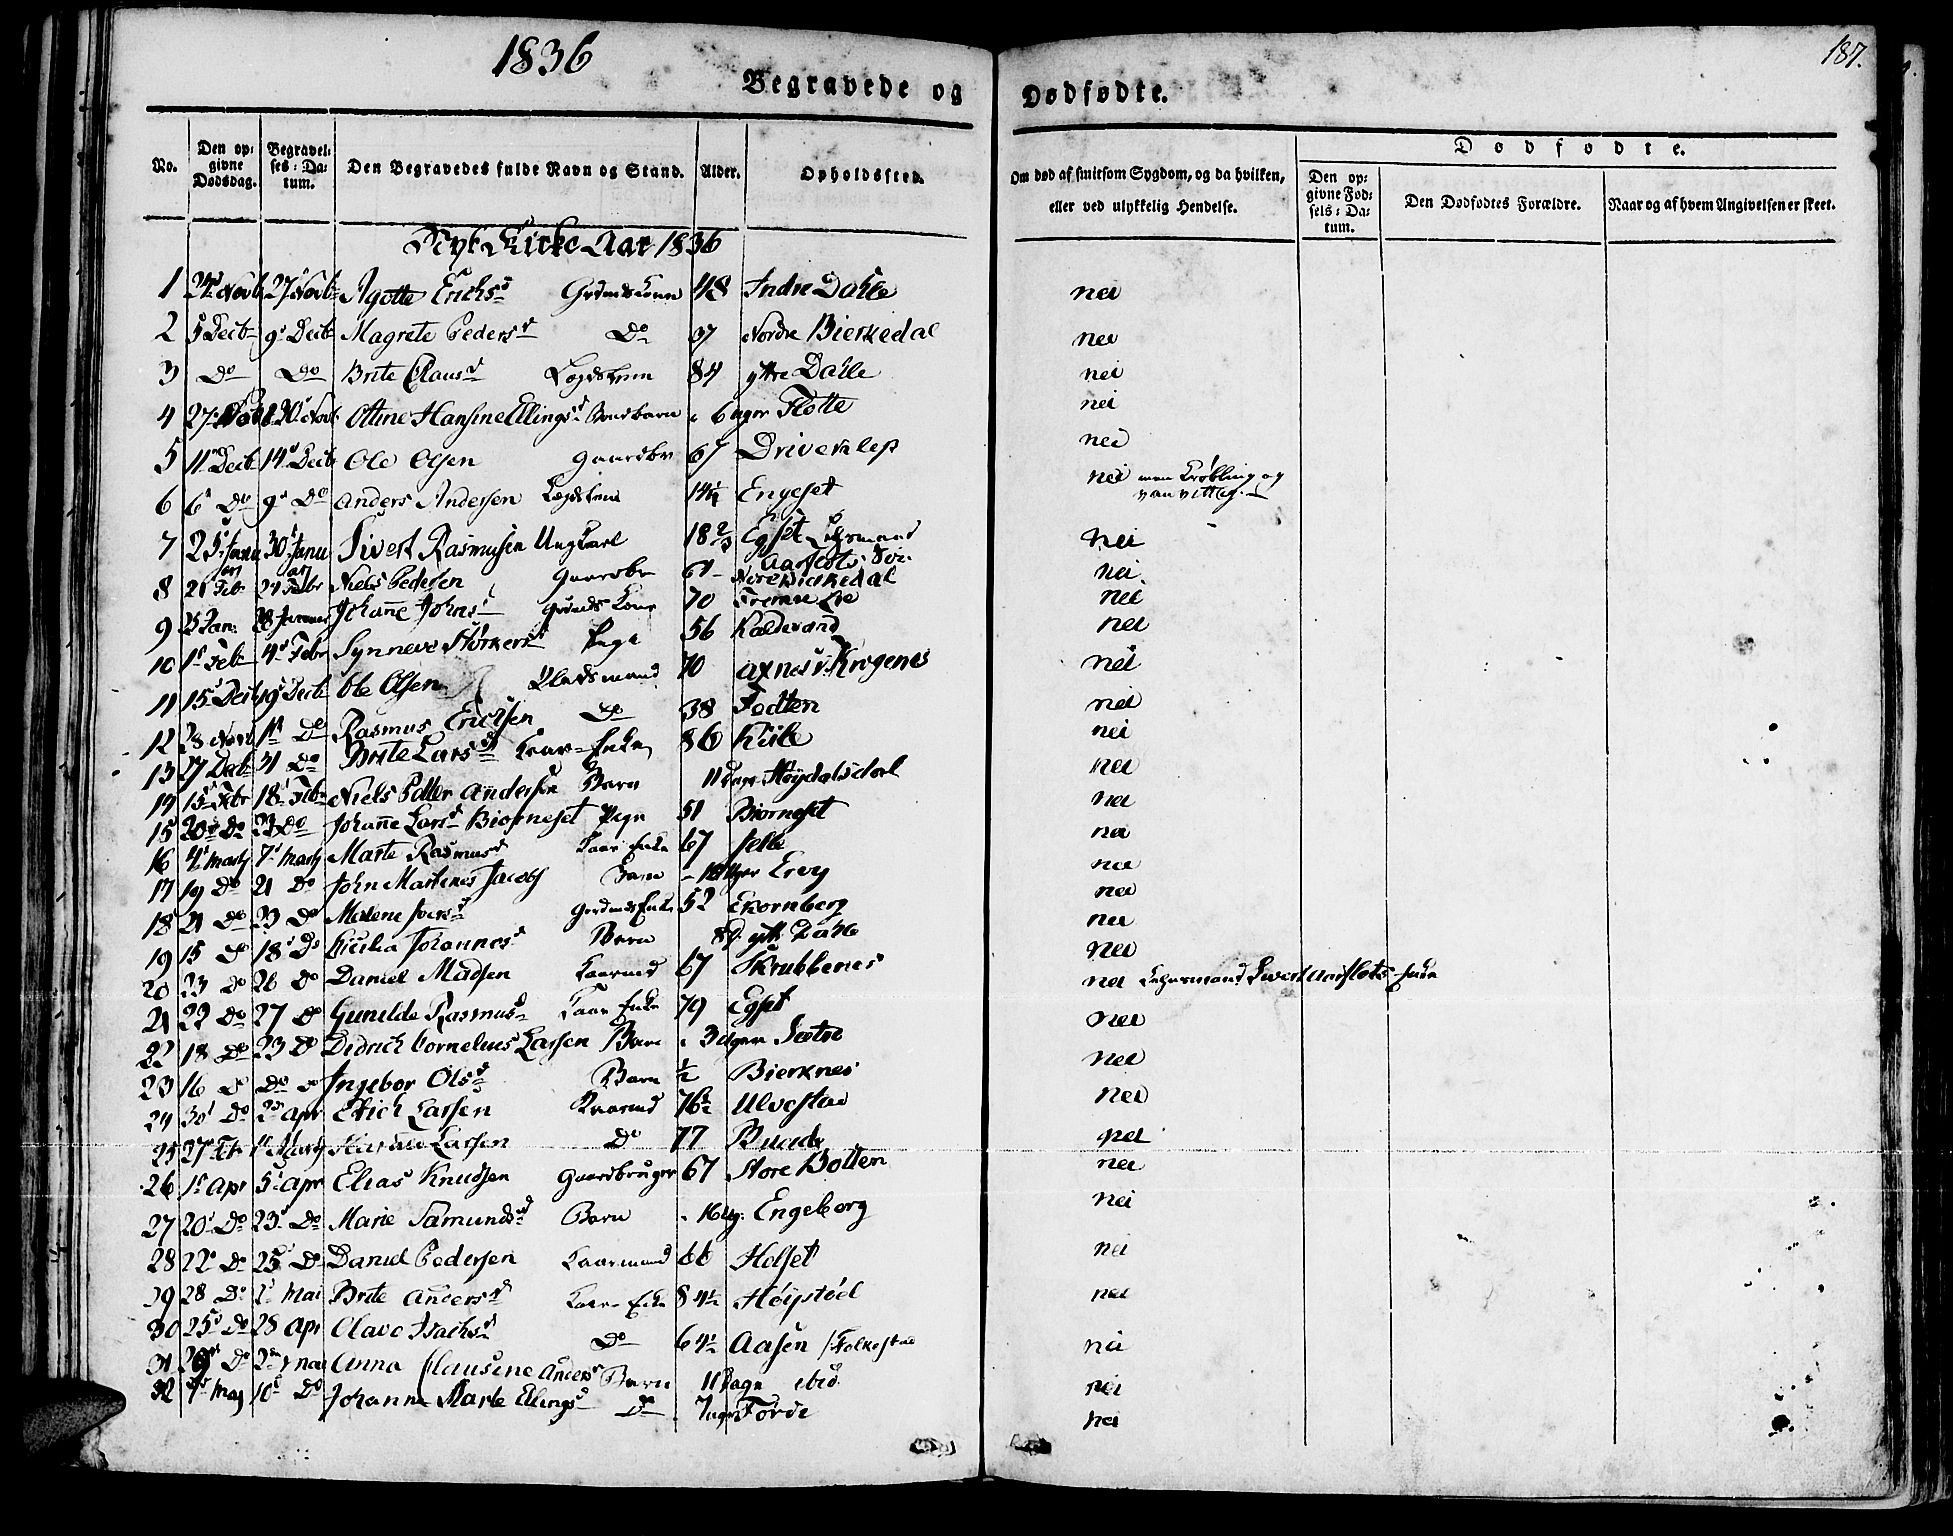 1836
187.
Begravede og Dødfødte.
No.
Den op=
givne
Dødsdag.
Begravel=
ses = Da=
tum.
Den Begravedes fulde Navn og Stand.
Alder.
Opholdssted.
Om død af smitsom Sygdom, og da hvilken,
eller ved ulykkelig Hendelse.
Dødfødte.
Den op=
givne Fød=
sels = Da=
tum.
Den Dødfødtes Forældre.
Naar og af hvem Angivelsen er skeet.
Nyt Kirke Aar 1836
1 24 Novb 27 Novb Agotte Erichsd Grdmds Kone 48 Indre Dahle nei
2 5 Decb 9 Decb Magrete Pedersd Do 37 Nordre Bierkedal nei
3 Do Do Brite Clausd Legdslem 84 ytre Dahle nei
4 27 30 Novb Ottine Hansine Ellingsd barn 6 uger Flotte nei
5 11 Decb 14 Decb Ole Olsen Gaardbr 67 Driveklep nei
6 6 Do 9 Do Anders Andersen Legdslem 14½ Engeset nei men Krøbling og
vanvittig.
7 25 Janu 30 Janu Sivert Rasmusen Ungkarl 18 2/3 Egset Lehnsmand
Aarflots Søn
8 21 Feb 27 Febr Niels Pedersen Gaardbr 61 Nore Birkedal nei
9 25 Jan 28 Johanne Johnsd Grdmds Kone 70 nei
10 1 Feb 4 Febr Synneve Størkersd Pege 56 Kaldevand nei
11 15 Decb 19 Decb Ole Olsen Pladsmand 70 Axnes v. Krogenes nei
12 28 Novb 1 Do Rasmus Erichsen Do 38 Fodten nei
13 27 Decb 31 Do Brite Larsd Kaar=Enke 86 Kiile nei
14 15 Febr 18 Febr Niels Petter Andersen Barn 11 Dage Høydalsdal nei
15 20 Do 23 Do Johanne Larsd Biørneset Pege 51 Biørneset nei
16 4 Martj 7 Martj Marte Rasmusd Kaar Enke 67 nei
17 19 Do 21 Do John Martenes Jacobs Barn Uger nei
18 21 Do 23 Do Malene Iversd Grdmds Enke 52 Ekornberg nei
19 15 Do 18 Do Cicilia Johannesd Barn 8 D. ytt Dahle nei
20 23 Do 26 Do Daniel Madsen Kaarmd 67 Skrubbenes nei
21 22 Do 27 Do Gunilde Rasmusd Kaar Enke 79 Egset nei Lehnsmand Sivert Aarflots Enke
22 18 Do 23 Do Didrich Cornelius Larsen Barn 3 Uger Sætre nei
23 16 Do Do Do Ingebor Olsd Barn ½ Bierknes nei
24 30 Do 2 Apr Erich Larsen Kaarmd 76½ Ulvestad nei
25 27 Feb 1 Martj Larsen Do 77 nei
26 1 Apr 5 Apr Elias Knudsen Gaardbruger 67 Store Botten nei
27 20 Do 23 Do Marie Samundsd Barn 16 ug. Engeborg nei
28 22 Do 25 Do Daniel Pedersen Kaarmand 66 Helset nei
29 28 Do Mai Brite Andersd Kaar=Enke 84½ Høystøel nei
30 25 Do 28 Apr Olave Isachsd Do 64½ Aasen / Folkestad nei
31 29 Do 2 Mai Anna Clausine Andersd Barn 11 Dage ibid. nei
32 7 Maj 10 Do Johanne Marte Ellingsd Do 7 uger Førde nei